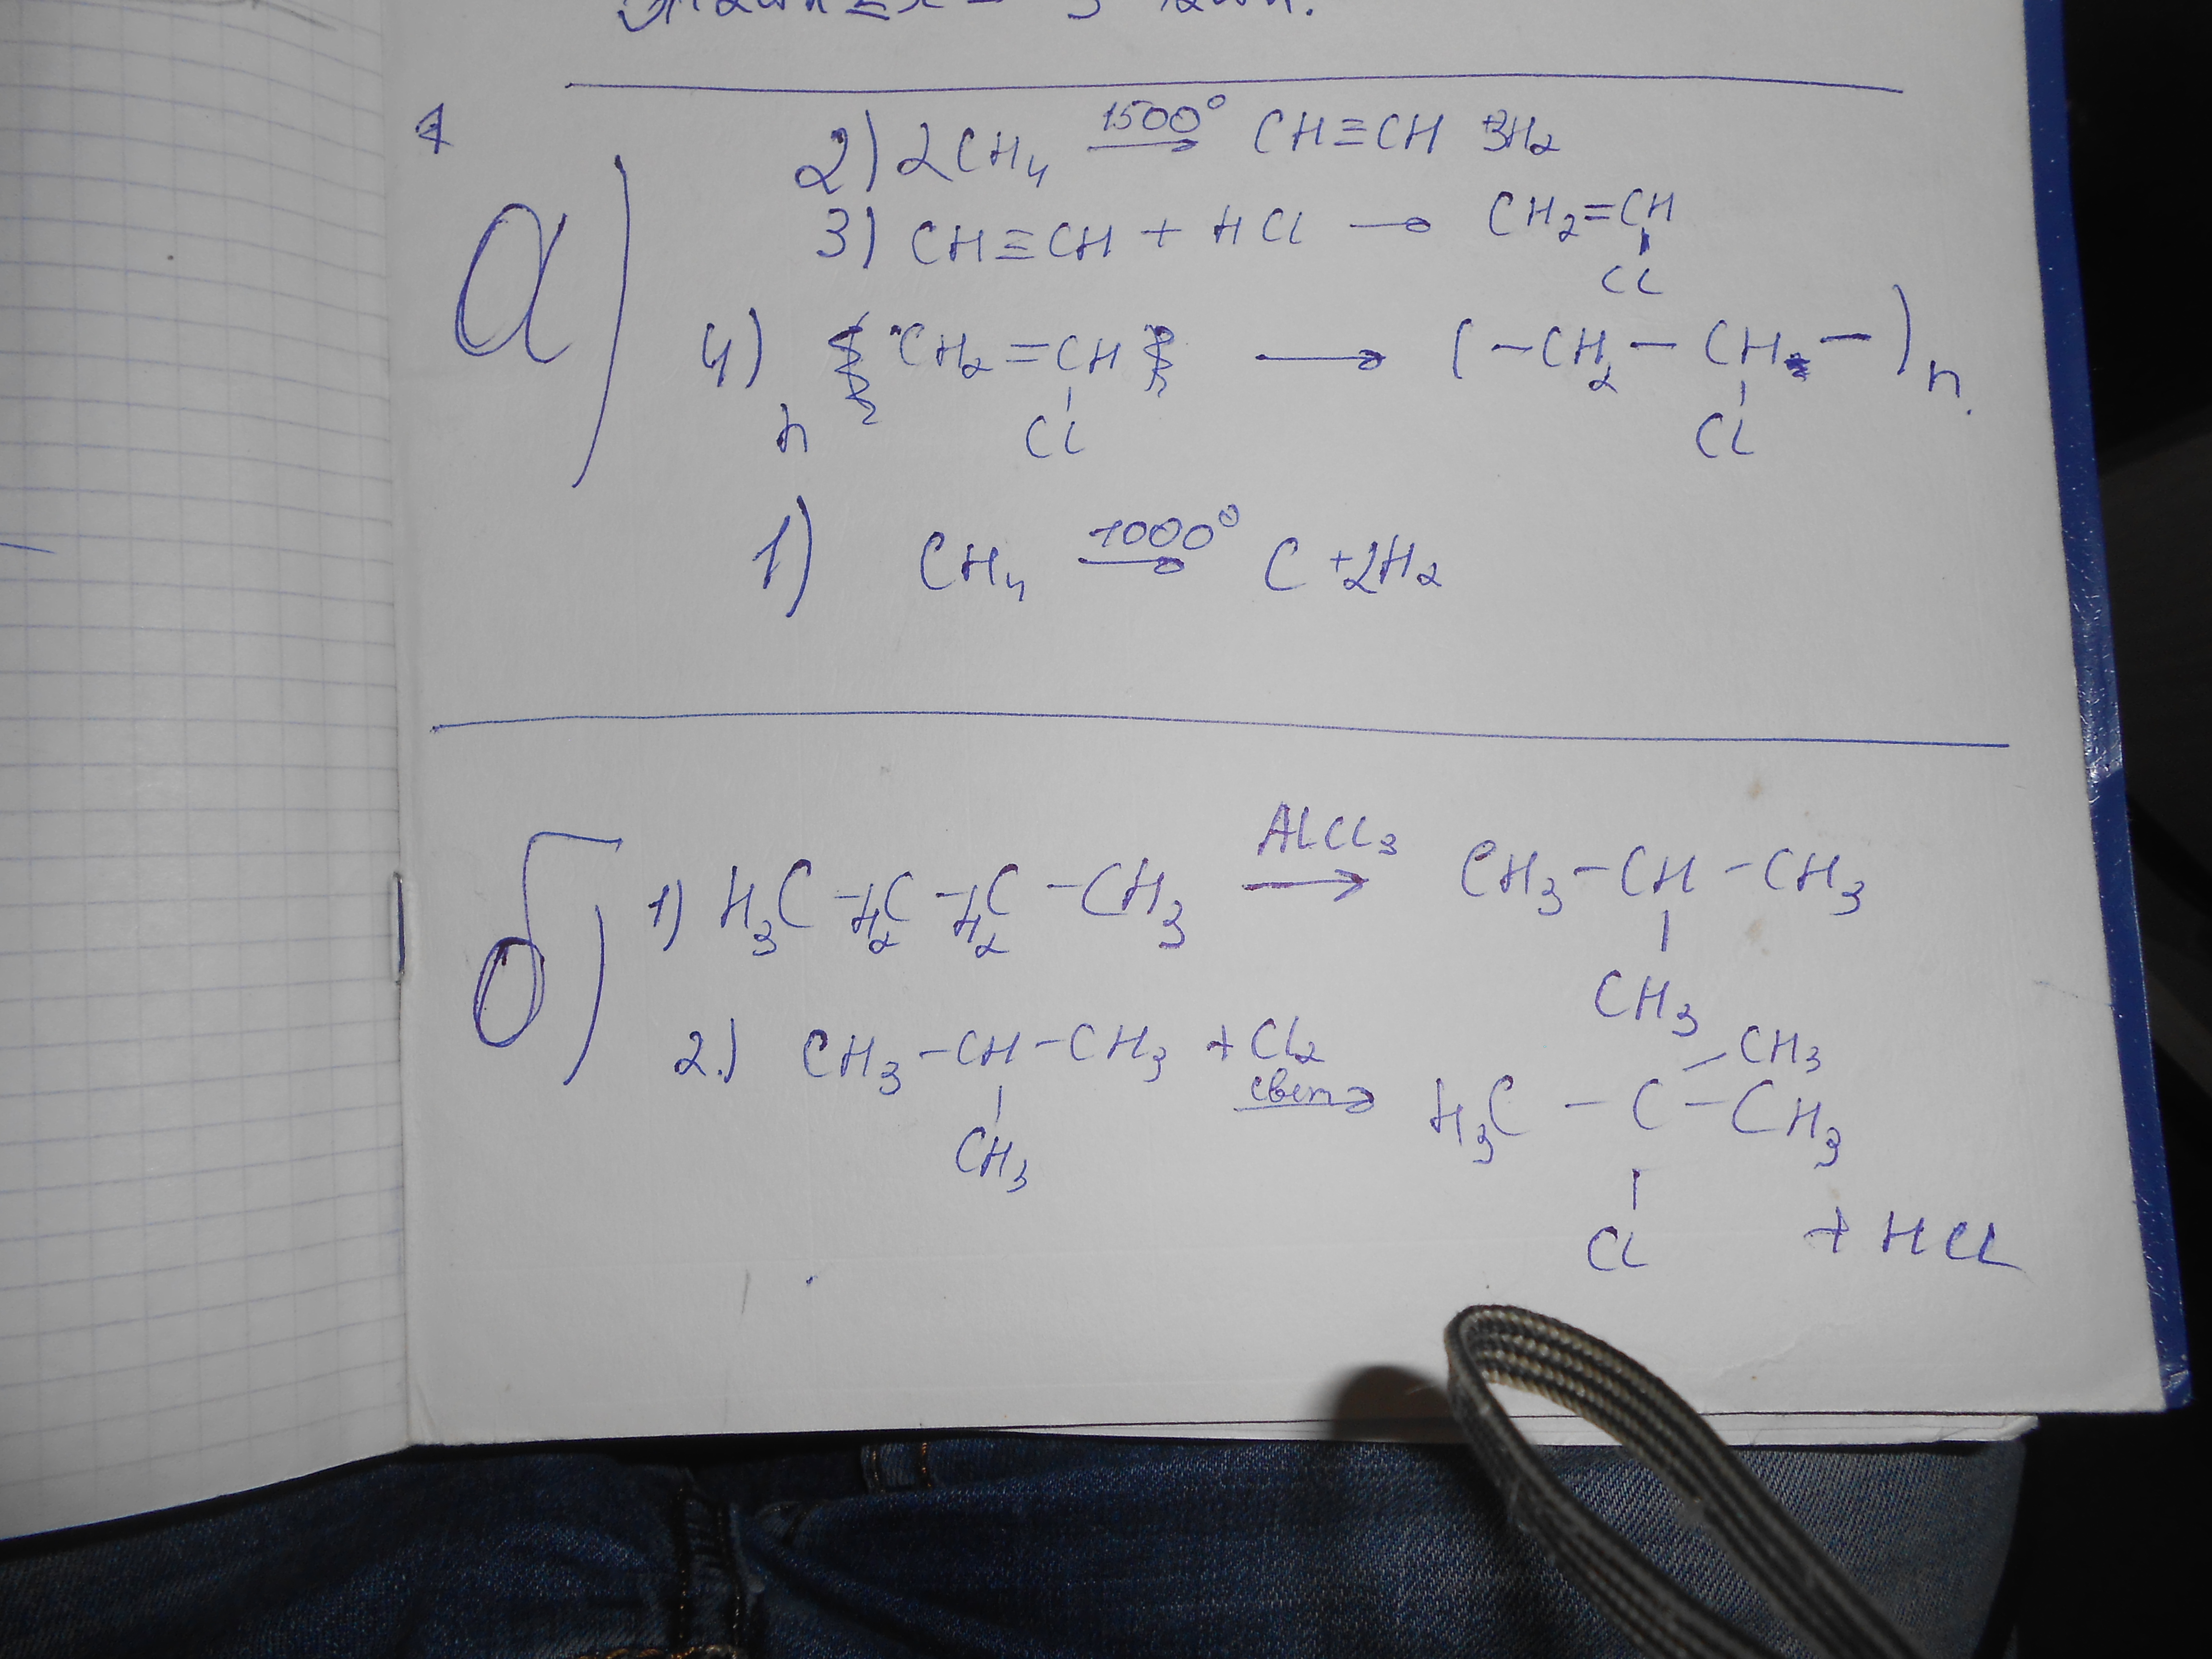 а)
2) 2CH₄ 1500° → CH≡CH +3H₂
3) CH≡CH + HCl → CH₂=CH
Cl
4) n CH₂=CH → (-CH₂-CH-)n.
Cl Cl
1) CH₄ 1000° → C +2H₂
б)
AlCl₃
1) H₃C-H₂C-H₂C-CH₃ → CH₃-CH-CH₃
CH₃
2.) CH₃-CH-CH₃ +Cl₂ свет → H₃C-C-CH₃
CH₃
CH₃
Cl
+ HCl